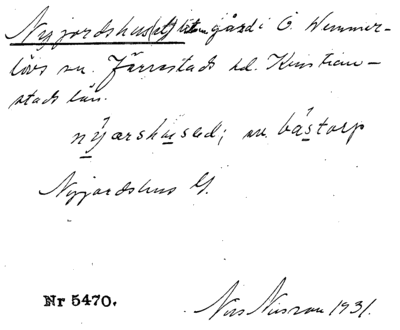 Nyjordshus(et) liten gård i Ö. Wemmer-
lövs sn. Järrestads hd. Kristian-
stads län.
nyjarshused; av båstorp
Nyjordshus G.
Nr 5470. Nils Nilsson 1931.